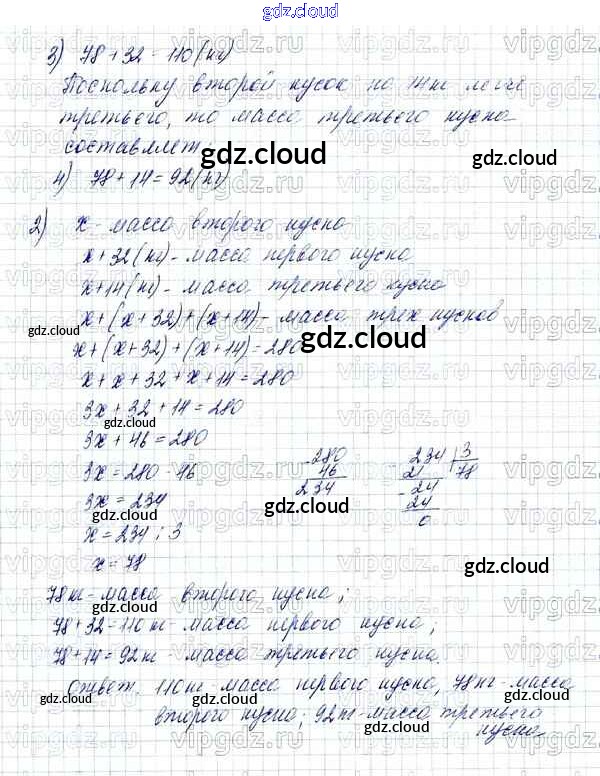 gdz.cloud
gdz.cloud
3) 78 + 32 = 110 (кг)
Поскольку второй кусок на 14 кг легче
третьего, то масса третьего куска
составляет
gdz.cloud
gdz.cloud
4) 78 + 14 = 92 (кг)
2) x - масса второго куска
x + 32 (кг) - масса первого куска
x + 14 (кг) - масса третьего куска
x + (x + 32) + (x + 14) - масса трех кусков
gdz.cloud
gdz.cloud
x + (x + 32) + (x + 14) = 280
x + x + 32 + x + 14 = 280
3x + 32 + 14 = 280
gdz.cloud
3x + 46 = 280
3x = 280 - 46
- 280
46
234
234 | 3
21 78
- 24
24
0
3x = 234
gdz.cloud
gdz.cloud
x = 234 : 3
x = 78
gdz.cloud
78 кг - масса второго куска;
gdz.cloud
78 + 32 = 110 кг - масса первого куска;
78 + 14 = 92 кг масса третьего куска.
gdz.cloud
Ответ. 110 кг - масса первого куска, 78 кг - масса
gdz.cloud
gdz.cloud
второго куска; 92 кг - масса третьего
куска
gdz.cloud